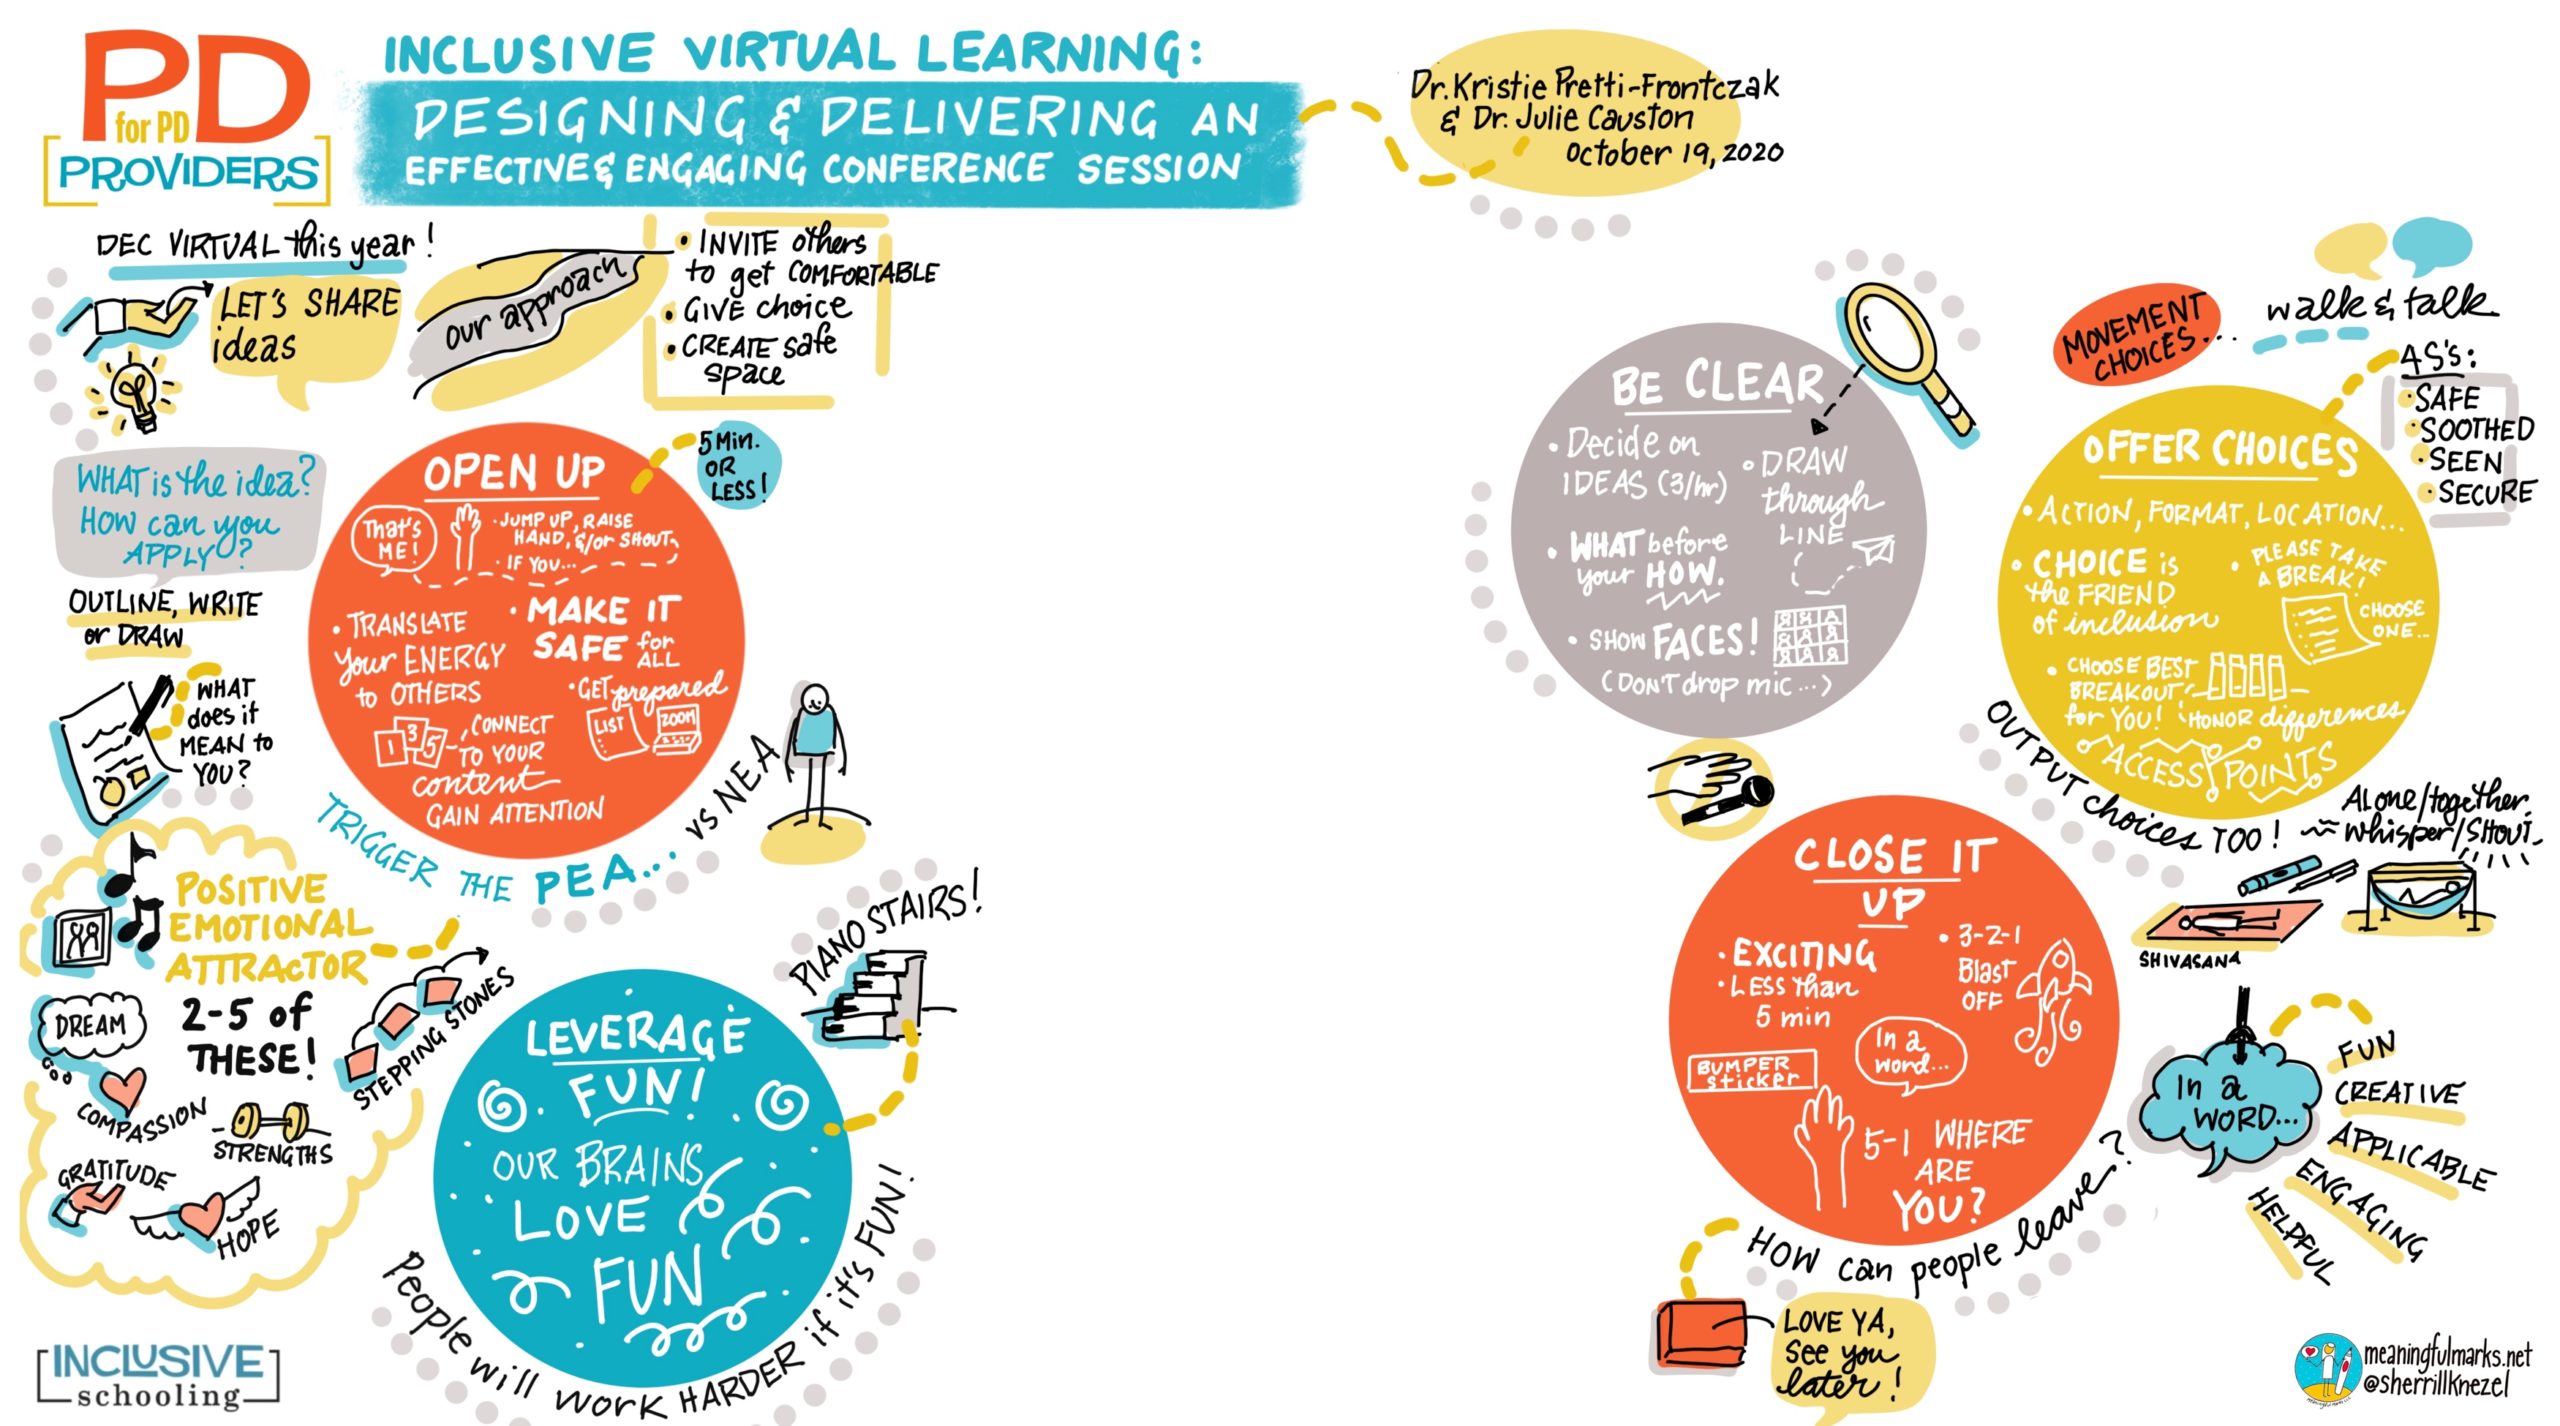 PD
for PD
PROVIDERS
INCLUSIVE VIRTUAL LEARNING:
DESIGNING & DELIVERING AN
EFFECTIVE & ENGAGING CONFERENCE SESSION
Dr. Kristie Pretti-Frontczak
& Dr. Julie Causton
October 19, 2020
DEC VIRTUAL this year!
LET'S SHARE
ideas
our approach
• INVITE others
to get COMFORTABLE
• GIVE choice
• CREATE safe
space
WHAT is the idea?
HOW can you
APPLY?
OUTLINE, WRITE
or DRAW
WHAT
does it
MEAN to
YOU?
OPEN UP
5 Min.
OR
LESS!
That's
ME!
• JUMP UP, RAISE
HAND, &/or SHOUT
• IF YOU...
• TRANSLATE
your ENERGY
to OTHERS
• MAKE IT
SAFE for
ALL
• GET prepared
LIST
ZOOM
1 3 5
CONNECT
TO YOUR
content
GAIN ATTENTION
TRIGGER THE PEA... vs NEA
POSITIVE
EMOTIONAL
ATTRACTOR
2-5 of
THESE!
DREAM
COMPASSION
STRENGTHS
GRATITUDE
HOPE
STEPPING STONES
PIANO STAIRS!
LEVERAGE
FUN!
OUR BRAINS
LOVE
FUN
People will work HARDER if it's FUN!
INCLUSIVE
schooling
BE CLEAR
• Decide on
IDEAS (3/hr)
• DRAW
through
LINE
• WHAT before
your HOW.
• SHOW FACES!
(DON'T drop mic...)
MOVEMENT
CHOICES...
walk & talk
4S's:
• SAFE
• SOOTHED
• SEEN
• SECURE
OFFER CHOICES
• ACTION, FORMAT, LOCATION...
• CHOICE is
the FRIEND
of inclusion
• PLEASE TAKE
A BREAK!
CHOOSE
ONE...
• CHOOSE BEST
BREAKOUT
for YOU!
• HONOR differences
ACCESS POINTS
OUTPUT choices TOO!
Alone/together
whisper/SHOUT
SHIVASANA
CLOSE IT
UP
• EXCITING
• LESS than
5 min
• 3-2-1
Blast
OFF
BUMPER
sticker
In a
word...
5-1 WHERE
ARE
YOU?
HOW can people leave?
LOVE YA,
see you
later!
In a
WORD...
FUN
CREATIVE
APPLICABLE
ENGAGING
HELPFUL
meaningfulmarks.net
@sherrillknezel